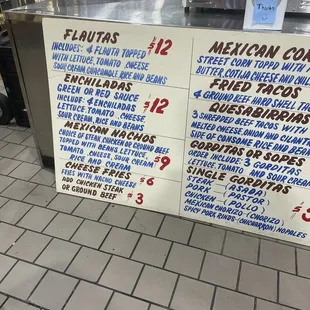 Thank
FLAUTAS
INCLUDES: 4 FLAUTA TOPPED $12
WITH LETTUCE, TOMATO, CHEESE
SOUR CREAM, GUACAMOLE, RICE AND BEANS
ENCHILADAS
GREEN OR RED SAUCE
INCLUDE: 4 ENCHILADAS $12
LETTUCE, TOMATO, CHEESE
SOUR CREAM, RICE AND BEANS
MEXICAN NACHOS
CHICKEN OR GROUND BEEF
TOPPED WITH BEANS, LETTUCE
TOMATO, CHEESE, SOUR CREAM $9
RICE AND CREAM
CHEESE FRIES
FRIES WITH NACHO CHEESE $6
ADD CHICKEN STEAK
OR GROUND BEEF $3
MEXICAN CO
STREET CORN TOPPED WITH
BUTTER, COTIJA CHEESE AND CHIL
FRIED TACOS
4 GROUND BEEF HARD SHELL
QUESABIRRIAS
3 SHREDDED BEEF TACOS WITH
MELTED CHEESE, ONION AND CILANT
SIDE OF CONSOME RICE AND
GORDITAS OR SOPES
ORDER INCLUDE: 3 GORDITAS
LETTUCE AND SOUR CREAM
SINGLE GORDITAS
STEAK (ASADA)
PORK (PASTOR)
CHICKEN (POLLO)
MEXICAN CHORIZO (CHORIZO)
SPICY PORK RINDS (CHICHARRON) NOPALES